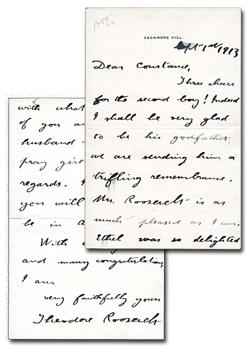 SAGAMORE HILL.
Sept 1st 1913
Dear Constance,
Three cheers
for the second boy! Indeed
I shall be very glad
to be his godfather;
we are sending him a
trifling remembrance.
Mrs. Roosevelt is as
much pleased as I am.
Ethel was so delighted
with what
of you a
husband
pray giv
regards. I
you will
be in a
With
and many congratulations,
I am
very faithfully yours
Theodore Roosevelt